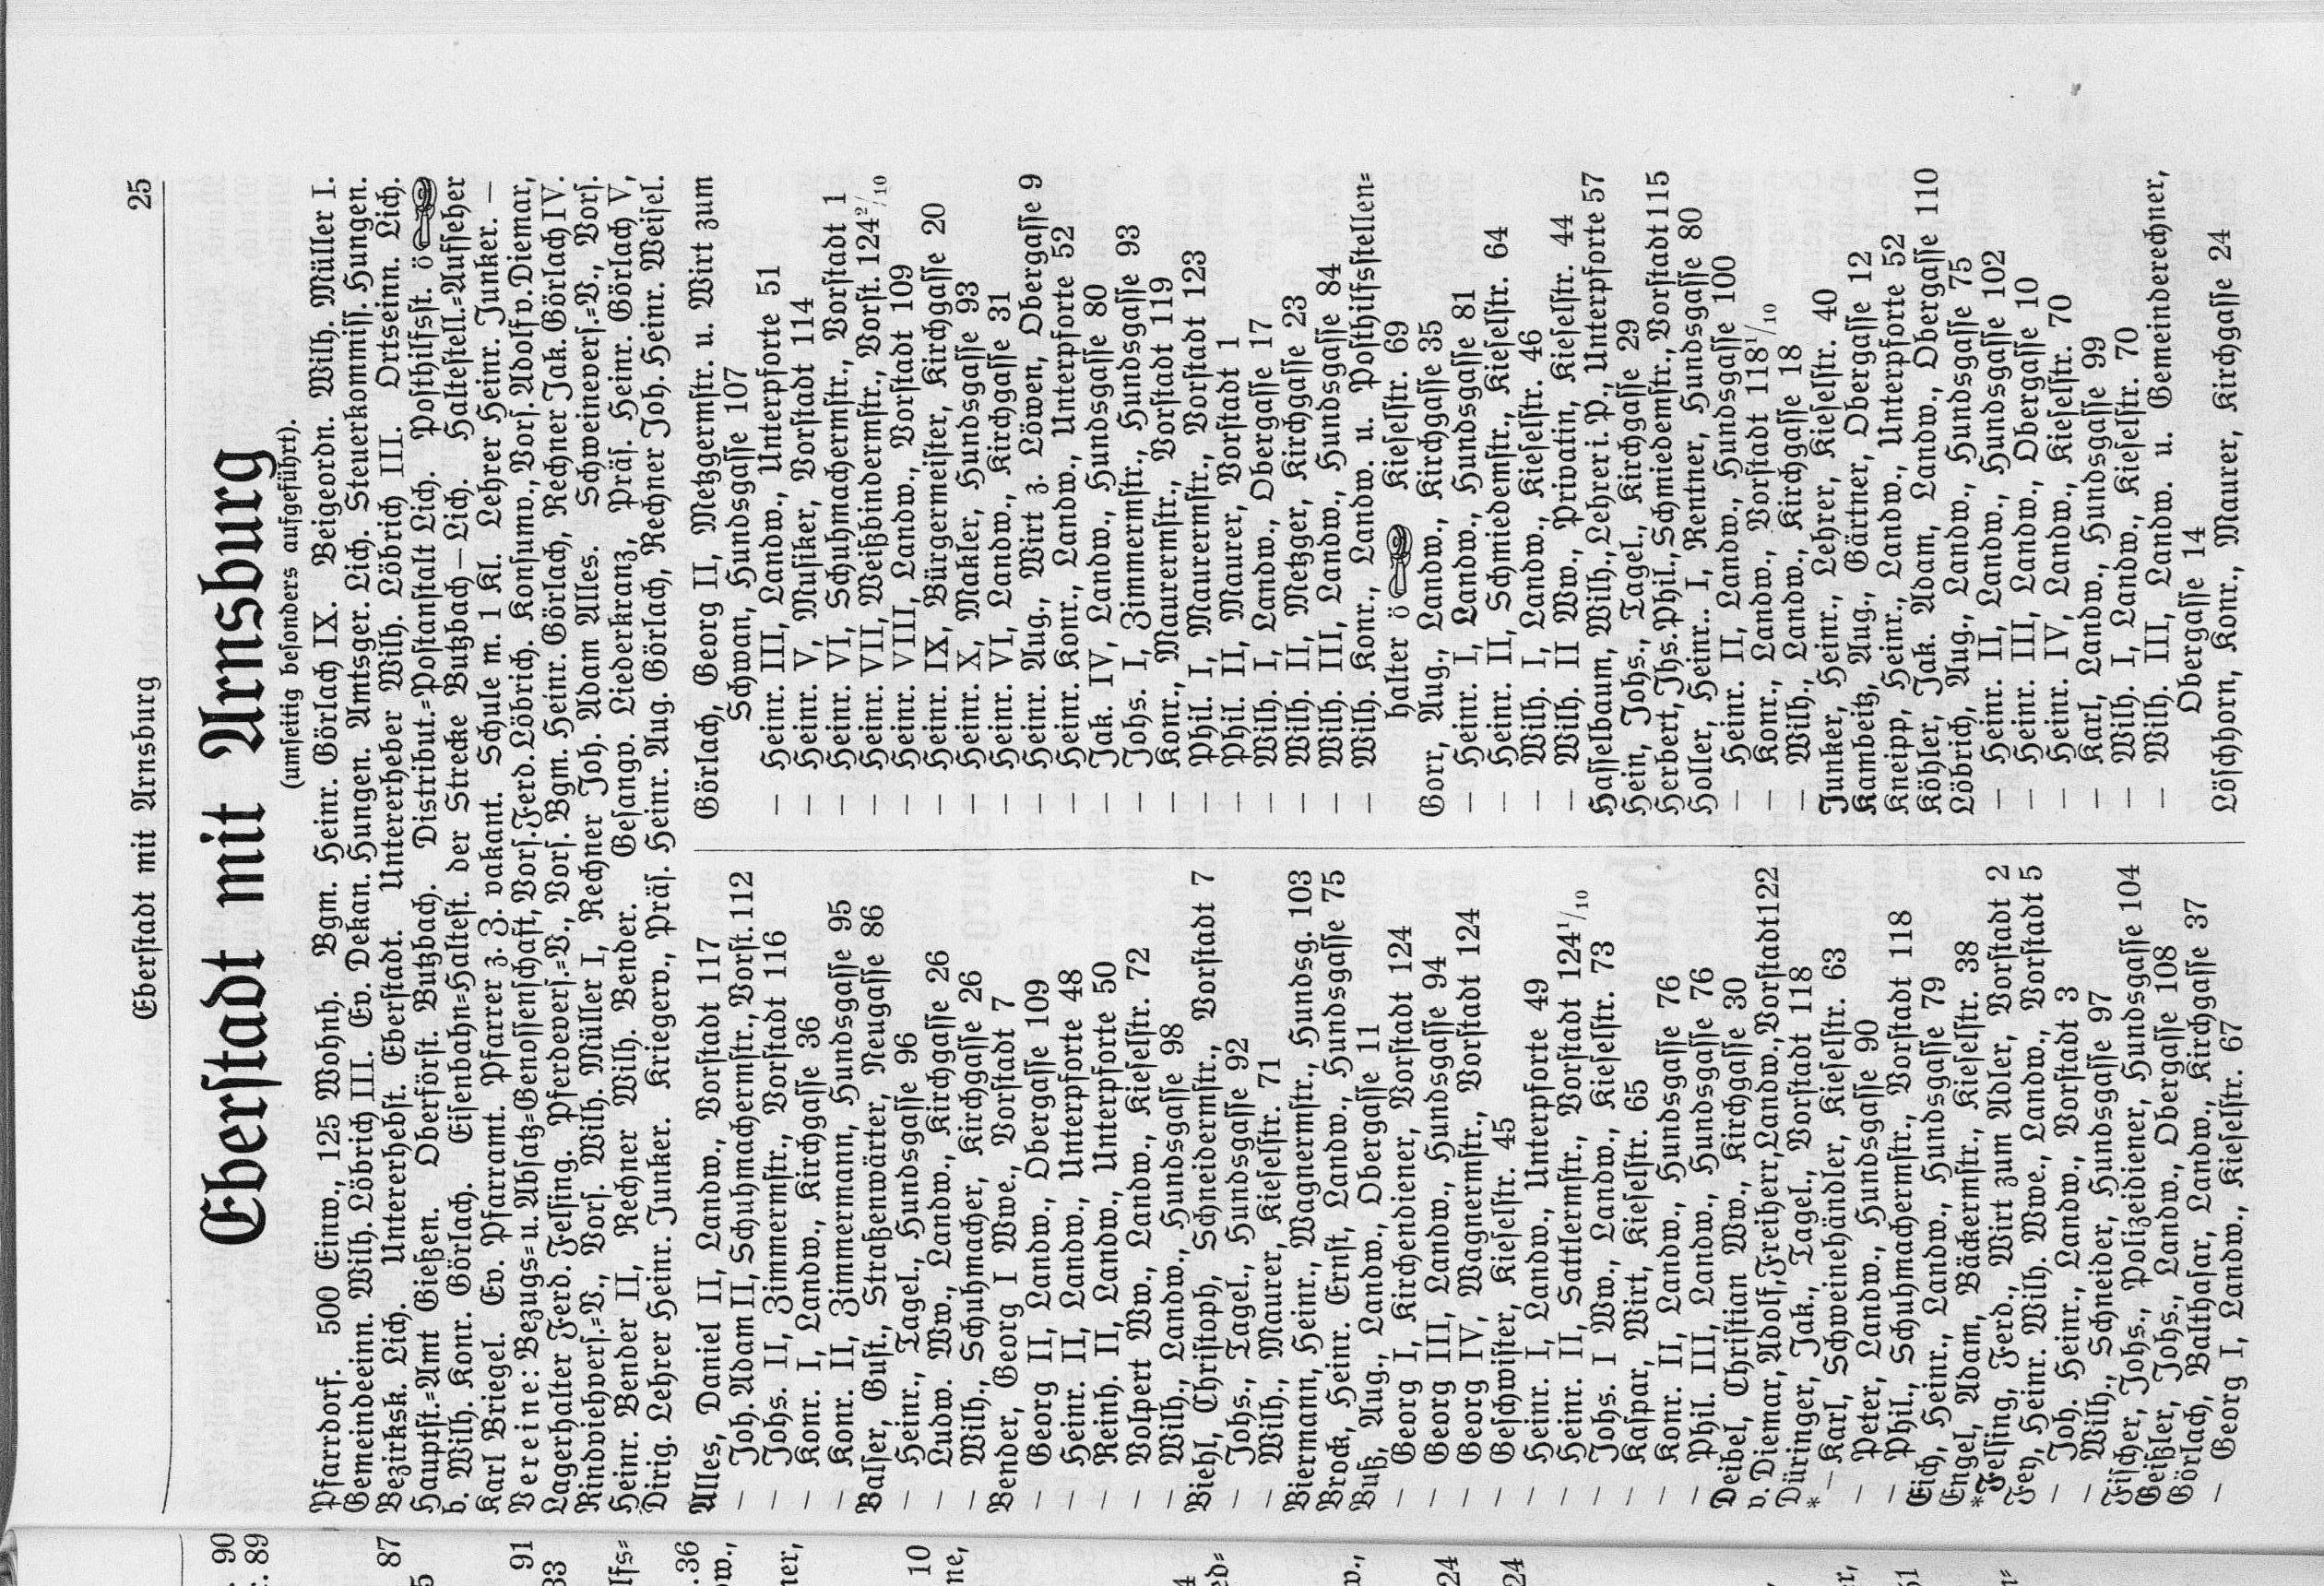 Eberſtadt mit Arnsburg 25
Eberſtadt mit Arnsburg
(umſeitig beſonders aufgeführt).
Pfarrdorf. 500 Einw., 125 Wohnh. Bgm. Heinr. Görlach IX. Beigeordn. Wilh. Müller I.
Gemeindeeinn. Wilh. Löbrich III. Ev. Dekan. Hungen. Amtsger. Lich. Steuerkommiſſ. Hungen.
Bezirksk. Lich. Untererhebſt. Eberſtadt. Untererheber Wilh. Löbrich III. Ortseinn. Lich.
Hauptſt.=Amt Gießen. Oberförſt. Butzbach. Diſtribut.=Poſtanſtalt Lich. Poſthilfsſt. ö
b. Wilh. Konr. Görlach. Eiſenbahn=Halteſt. der Strecke Butzbach—Lich. Halteſtell.=Aufſeher
Karl Briegel. Ev. Pfarramt. Pfarrer z. Z. vakant. Schule m. 1 Kl. Lehrer Heinr. Junker. —
Vereine: Bezugs= u. Abſatz=Genoſſenſchaft, Vorſ. Ferd. Löbrich. Konſumv., Vorſ. Adolf v. Diemar,
Lagerhalter Ferd. Felſing. Pferdeverſ.=V., Vorſ. Bgm. Heinr. Görlach, Rechner Jak. Görlach IV.
Rindviehverſ.=V., Vorſ. Wilh. Müller I, Rechner Joh. Adam Alles. Schweineverſ.=V., Vorſ.
Heinr. Bender II, Rechner Wilh. Bender. Geſangv. Liederkranz, Präſ. Heinr. Görlach V,
Dirig. Lehrer Heinr. Junker. Kriegerv., Präſ. Heinr. Aug. Görlach, Rechner Joh. Heinr. Weiſel.
Alles, Daniel II, Landw., Vorſtadt 117
— Joh. Adam II, Schuhmachermſtr., Vorſt. 112
— Johs. II, Zimmermſtr., Vorſtadt 116
— Konr. I, Landw., Kirchgaſſe 36
— Konr. II, Zimmermann, Hundsgaſſe 95
Balſer, Guſt., Straßenwärter, Neugaſſe 86
— Heinr., Tagel., Hundsgaſſe 96
— Ludw. Ww., Landw., Kirchgaſſe 26
— Wilh., Schuhmacher, Kirchgaſſe 26
Bender, Georg I Wwe., Vorſtadt 7
— Georg II, Landw., Obergaſſe 109
— Heinr. II, Landw., Unterpforte 48
— Reinh. II, Landw., Unterpforte 50
— Volpert Ww., Landw., Kieſelſtr. 72
— Wilh., Landw., Hundsgaſſe 98
Biehl, Chriſtoph, Schneidermſtr., Vorſtadt 7
— Johs., Tagel., Hundsgaſſe 92
— Wilh., Maurer, Kieſelſtr. 71
Biermann, Heinr., Wagnermſtr., Hundsg. 103
Brock, Heinr. Ernſt, Landw., Hundsgaſſe 75
Buß, Aug., Landw., Obergaſſe 11
— Georg I, Kirchendiener, Vorſtadt 124
— Georg III, Landw., Hundsgaſſe 94
— Georg IV, Wagnermſtr., Vorſtadt 124
— Geſchwiſter, Kieſelſtr. 45
— Heinr. I, Landw., Unterpforte 49
— Heinr. II, Sattlermſtr., Vorſtadt 124¹/₁₀
— Johs. I Ww., Landw., Kieſelſtr. 73
— Kaſpar, Wirt, Kieſelſtr. 65
— Konr. II, Landw., Hundsgaſſe 76
— Phil. III, Landw., Hundsgaſſe 76
Deibel, Chriſtian Ww., Kirchgaſſe 30
v. Diemar, Adolf, Freiherr, Landw., Vorſtadt 122
Düringer, Jak., Tagel., Vorſtadt 118
*— Karl, Schweinehändler, Kieſelſtr. 63
— Peter, Landw., Hundsgaſſe 90
— Phil., Schuhmachermſtr., Vorſtadt 118
Eich, Heinr., Landw., Hundsgaſſe 79
Engel, Adam, Bäckermſtr., Kieſelſtr. 38
*Felſing, Ferd., Wirt zum Adler, Vorſtadt 2
Fey, Heinr. Wilh. Wwe., Landw., Vorſtadt 5
— Joh. Heinr., Landw., Vorſtadt 3
— Wilh., Schneider, Hundsgaſſe 97
Fiſcher, Johs., Polizeidiener, Hundsgaſſe 104
Geißler, Johs., Landw., Obergaſſe 108
Görlach, Balthaſar, Landw., Kirchgaſſe 37
— Georg I, Landw., Kieſelſtr. 67
Görlach, Georg II, Metzgermſtr. u. Wirt zum
Schwan, Hundsgaſſe 107
— Heinr. III, Landw., Unterpforte 51
— Heinr. V, Muſiker, Vorſtadt 114
— Heinr. VI, Schuhmachermſtr., Vorſtadt 1
— Heinr. VII, Weißbindermſtr., Vorſt. 124²/₁₀
— Heinr. VIII, Landw., Vorſtadt 109
— Heinr. IX, Bürgermeiſter, Kirchgaſſe 20
— Heinr. X, Makler, Hundsgaſſe 93
— Heinr. VI, Landw., Kirchgaſſe 31
— Heinr. Aug., Wirt z. Löwen, Obergaſſe 9
— Heinr. Konr., Landw., Unterpforte 52
— Jak. IV, Landw., Hundsgaſſe 80
— Johs. I, Zimmermſtr., Hundsgaſſe 93
— Konr., Maurermſtr., Vorſtadt 119
— Phil. I, Maurermſtr., Vorſtadt 123
— Phil. II, Maurer, Vorſtadt 1
— Wilh. I, Landw., Obergaſſe 17
— Wilh. II, Metzger, Kirchgaſſe 23
— Wilh. III, Landw., Hundsgaſſe 84
— Wilh. Konr., Landw. u. Poſthilfsſtellen=
halter ö Kieſelſtr. 69
Gorr, Aug., Landw., Kirchgaſſe 35
— Heinr. I, Landw., Hundsgaſſe 81
— Heinr. II, Schmiedemſtr., Kieſelſtr. 64
— Wilh. I, Landw., Kieſelſtr. 46
— Wilh. II Ww., Privatin, Kieſelſtr. 44
Haſſelbaum, Wilh., Lehrer i. P., Unterpforte 57
Hein, Johs., Tagel., Kirchgaſſe 29
Herbert, Jhs. Phil., Schmiedemſtr., Vorſtadt 115
Holler, Heinr. I, Rentner, Hundsgaſſe 80
— Heinr. II, Landw., Hundsgaſſe 100
— Konr., Landw., Vorſtadt 118¹/₁₀
— Wilh., Landw., Kirchgaſſe 18
Junker, Heinr., Lehrer, Kieſelſtr. 40
Kambeitz, Aug., Gärtner, Obergaſſe 12
Kneipp, Heinr., Landw., Unterpforte 52
Köhler, Jak. Adam, Landw., Obergaſſe 110
Löbrich, Aug., Landw., Hundsgaſſe 75
— Heinr. II, Landw., Hundsgaſſe 102
— Heinr. III, Landw., Obergaſſe 10
— Heinr. IV, Landw., Kieſelſtr. 70
— Karl, Landw., Hundsgaſſe 99
— Wilh. I, Landw., Kieſelſtr. 70
— Wilh. III, Landw. u. Gemeinderechner,
Obergaſſe 14
Löſchhorn, Konr., Maurer, Kirchgaſſe 24